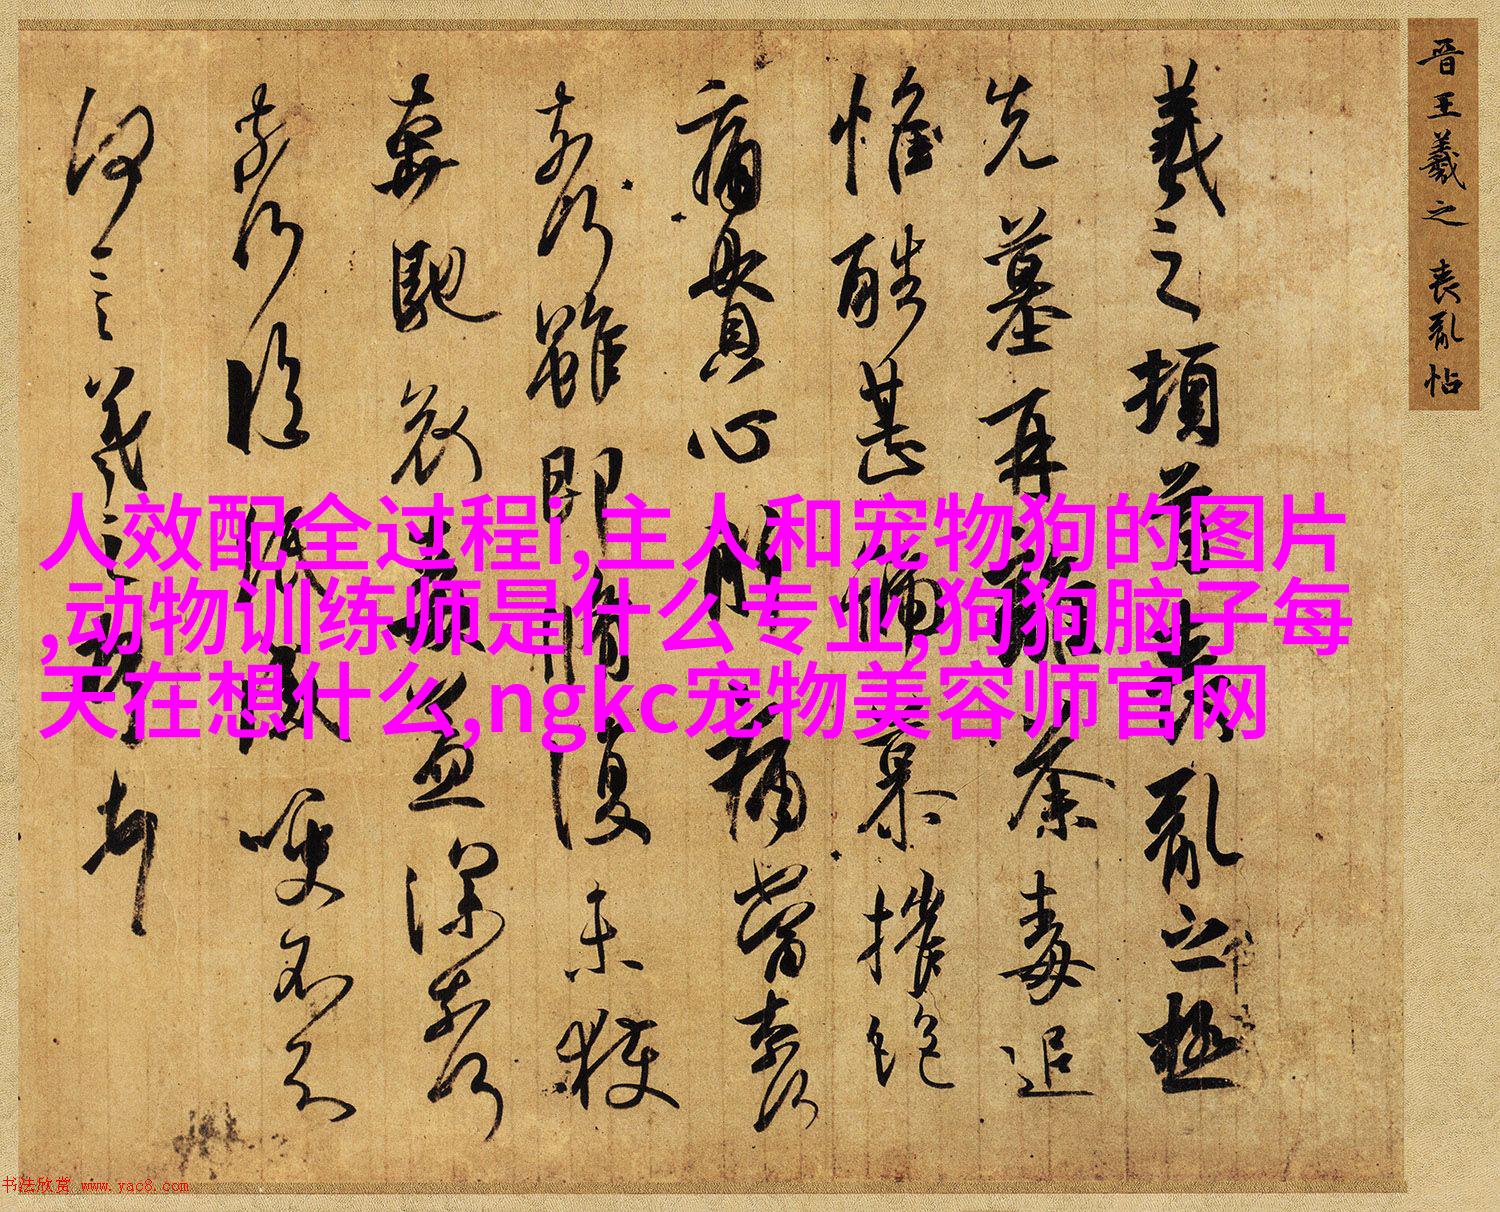 晋王羲之 丧乱帖
羲之顿首丧乱之极
先墓再离荼毒追
惟酷甚号慕摧绝
痛贯心肝痛当奈何
奈何虽即修复未獲
奔驰哀毒益深奈何
奈何临纸感哽不知
何言羲之顿首
人效配全过程i,主人和宠物狗的图片
,动物训练师是什么专业,狗狗脑子每
天在想什么,ngkc宠物美容师官网
书法欣赏 www.yac8.com